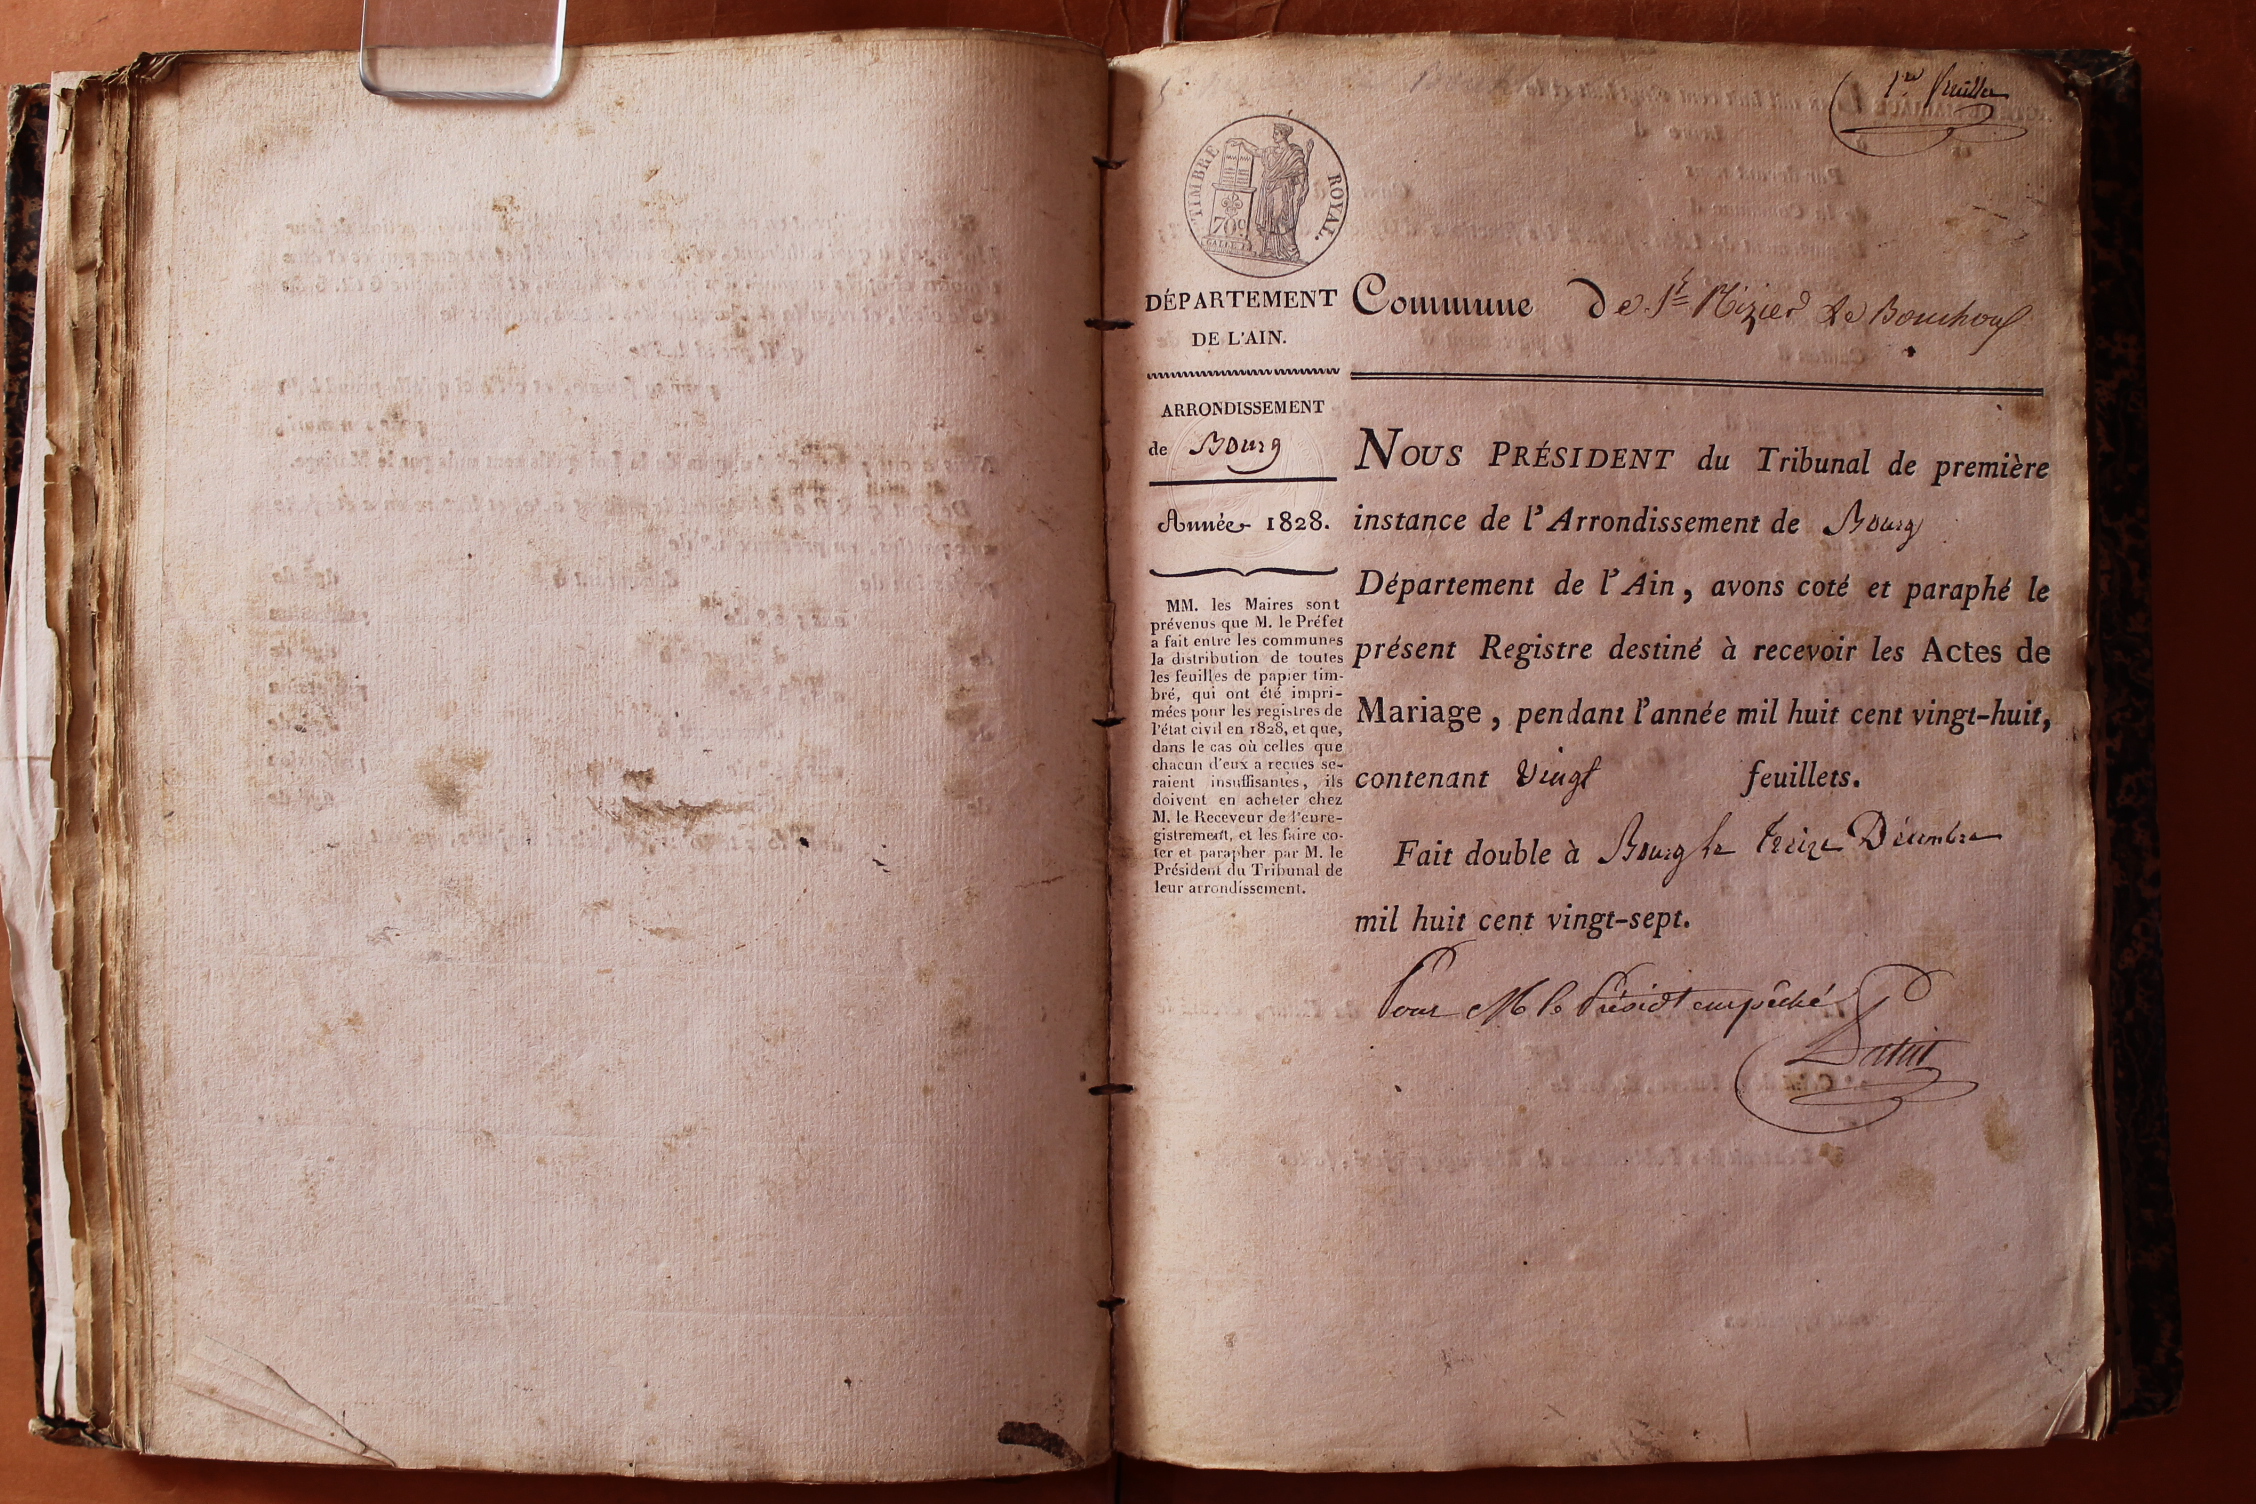 1er feuillet
TIMBRE ROYAL.
70c
DÉPARTEMENT
DE L'AIN.
Commune De St Nizier Le Bouchoux
ARRONDISSEMENT
de Bourg
Année 1828.
MM. les Maires sont
prévenus que M. le Préfet
a fait entre les communes
la distribution de toutes
les feuilles de papier tim-
bré, qui ont été impri-
mées pour les registres de
l'état civil en 1828, et que,
dans le cas où celles que
chacun d'eux a reçues se-
raient insuffisantes, ils
doivent en acheter chez
M. le Receveur de l'enre-
gistrement, et les faire co-
ter et parapher par M. le
Président du Tribunal de
leur arrondissement.
NOUS PRÉSIDENT du Tribunal de première
instance de l'Arrondissement de Bourg
Département de l'Ain, avons coté et paraphé le
présent Registre destiné à recevoir les Actes de
Mariage, pendant l'année mil huit cent vingt-huit,
contenant Vingt feuillets.
Fait double à Bourg le treize Décembre
mil huit cent vingt-sept.
Pour M le Présidt empêché